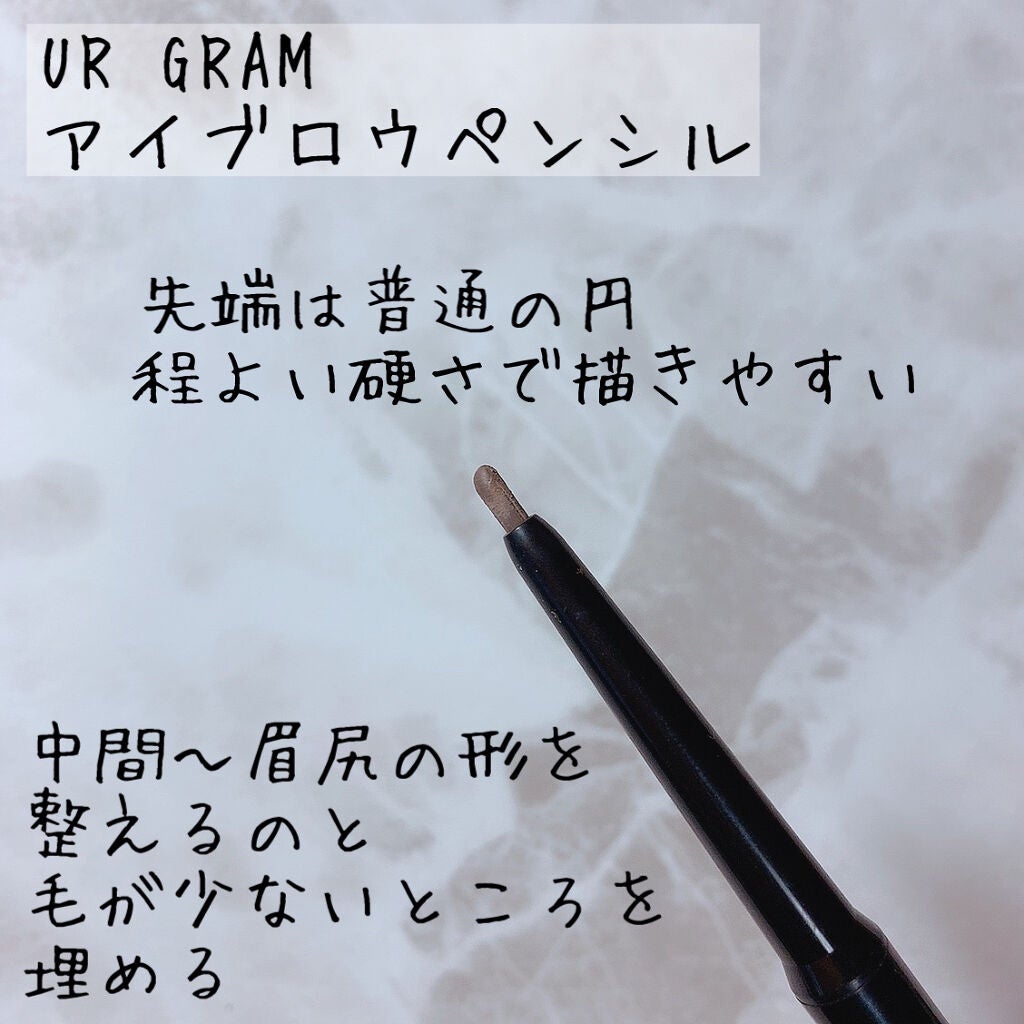 UR GRAM
アイブロウペンシル
先端は普通の円
程よい硬さで描きやすい
中間〜眉尻の形を
整えるのと
毛が少ないところを
埋める